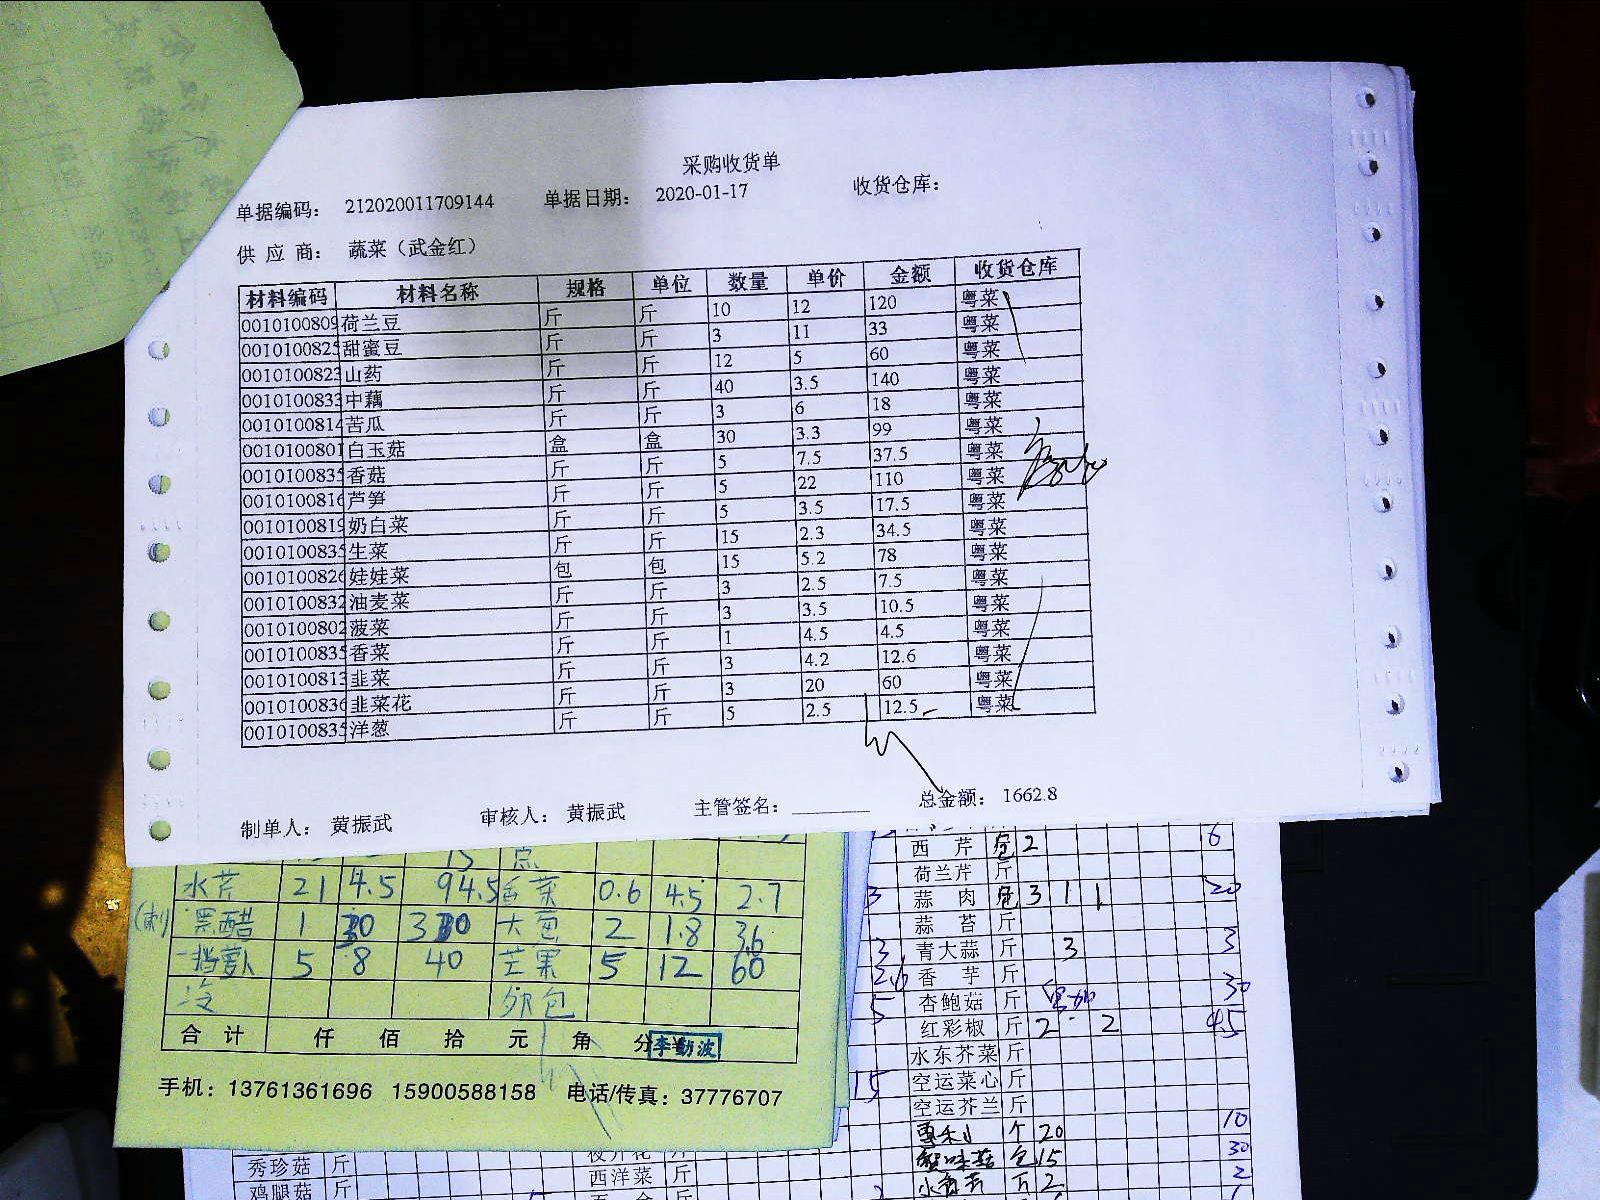 采购收货单
单据编码： 212020011709144 单据日期： 2020-01-17 收货仓库：
供 应 商： 蔬菜（武金红）
材料编码 材料名称 规格 单位 数量 单价 金额 收货仓库
0010100809 荷兰豆 斤 斤 10 12 120 粤菜
0010100825 甜蜜豆 斤 斤 3 11 33 粤菜
0010100823 山药 斤 斤 12 5 60 粤菜
0010100833 中藕 斤 斤 40 3.5 140 粤菜
0010100814 苦瓜 斤 斤 3 6 18 粤菜
0010100801 白玉菇 盒 盒 30 3.3 99 粤菜
0010100835 香菇 斤 斤 5 7.5 37.5 粤菜
0010100816 芦笋 斤 斤 5 22 110 粤菜
0010100819 奶白菜 斤 斤 5 3.5 17.5 粤菜
0010100835 生菜 斤 斤 15 2.3 34.5 粤菜
0010100826 娃娃菜 包 包 15 5.2 78 粤菜
0010100832 油麦菜 斤 斤 3 2.5 7.5 粤菜
0010100802 菠菜 斤 斤 3 3.5 10.5 粤菜
0010100835 香菜 斤 斤 1 4.5 4.5 粤菜
0010100813 韭菜 斤 斤 3 4.2 12.6 粤菜
0010100836 韭菜花 斤 斤 3 20 60 粤菜
0010100835 洋葱 斤 斤 5 2.5 12.5 粤菜
制单人： 黄振武 审核人： 黄振武 主管签名： 总金额： 1662.8
水芹 21 4.5 94.5 香菜 0.6 4.5 2.7
1 大葱 2 1.8 3.6
5 8 40 芒果 5 12 60
合 计 仟 佰 拾 元 角 分
李勤波
手机：13761361696 15900588158 电话/传真：37776707
西 芹 2 6
荷兰芹 斤
蒜 肉 包 3 1 1 20
蒜 苔 斤
青大蒜 斤 3 3
香 芋 斤
杏鲍菇 斤 30
红彩椒 斤 2 2 4.5
水东芥菜 斤
空运菜心 斤
空运芥兰 斤
个 20 10
包 15 30
斤 2 2
秀珍菇 斤
西洋菜 斤
鸡腿菇 斤